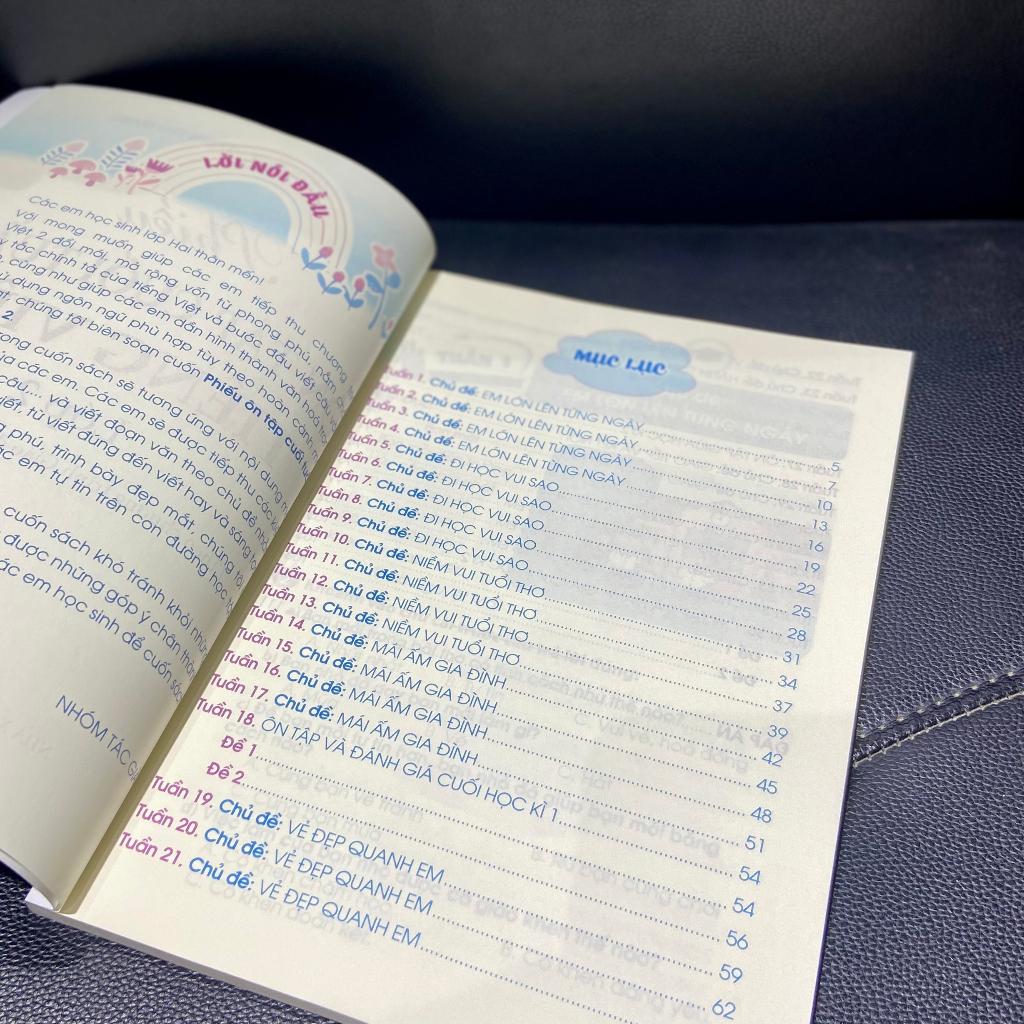 LỜI NÓI ĐẦU
Các em học sinh lớp Hai thân mến!
Với mong muốn giúp các em tiếp thu chương
Việt 2 đổi mới, mở rộng vốn từ phong phú, nắm
tắc chính tả của tiếng Việt và bước đầu viết
cũng như giúp các em dần hình thành văn hoá
dụng ngôn ngữ phù hợp tùy theo hoàn cảnh
chúng tôi biên soạn cuốn Phiếu ôn tập cuối
2.
trong cuốn sách sẽ tương ứng với nội dung
của các em. Các em sẽ được tiếp thu các
câu,... và viết đoạn văn theo chủ đề
từ viết đúng đến viết hay và sáng
phú, trình bày đẹp mắt, chúng tôi
các em tự tin trên con đường học
cuốn sách khó tránh khỏi những
được những góp ý chân
các em học sinh để cuốn sách
NHÓM TÁC
MỤC LỤC
Tuần 1. Chủ đề: EM LỚN LÊN TỪNG NGÀY 5
Tuần 2. Chủ đề: EM LỚN LÊN TỪNG NGÀY 7
Tuần 3. Chủ đề: EM LỚN LÊN TỪNG NGÀY 10
Tuần 4. Chủ đề: EM LỚN LÊN TỪNG NGÀY 13
Tuần 5. Chủ đề: ĐI HỌC VUI SAO 16
Tuần 6. Chủ đề: ĐI HỌC VUI SAO 19
Tuần 7. Chủ đề: ĐI HỌC VUI SAO 22
Tuần 8. Chủ đề: ĐI HỌC VUI SAO 25
Tuần 9. Chủ đề: 28
Tuần 10. Chủ đề: NIỀM VUI TUỔI THƠ 31
Tuần 11. Chủ đề: NIỀM VUI TUỔI THƠ 34
Tuần 12. Chủ đề: NIỀM VUI TUỔI THƠ 37
Tuần 13. Chủ đề: 39
Tuần 14. Chủ đề: MÁI ẤM GIA ĐÌNH 42
Tuần 15. Chủ đề: MÁI ẤM GIA ĐÌNH 45
Tuần 16. Chủ đề: MÁI ẤM GIA ĐÌNH 48
Tuần 17. Chủ đề: MÁI ẤM GIA ĐÌNH 51
Tuần 18. ÔN TẬP VÀ ĐÁNH GIÁ CUỐI HỌC KÌ 1 54
Đề 1 54
Đề 2 56
Tuần 19. Chủ đề: VẺ ĐẸP QUANH EM 59
Tuần 20. Chủ đề: VẺ ĐẸP QUANH EM 62
Tuần 21. Chủ đề: VẺ ĐẸP QUANH EM